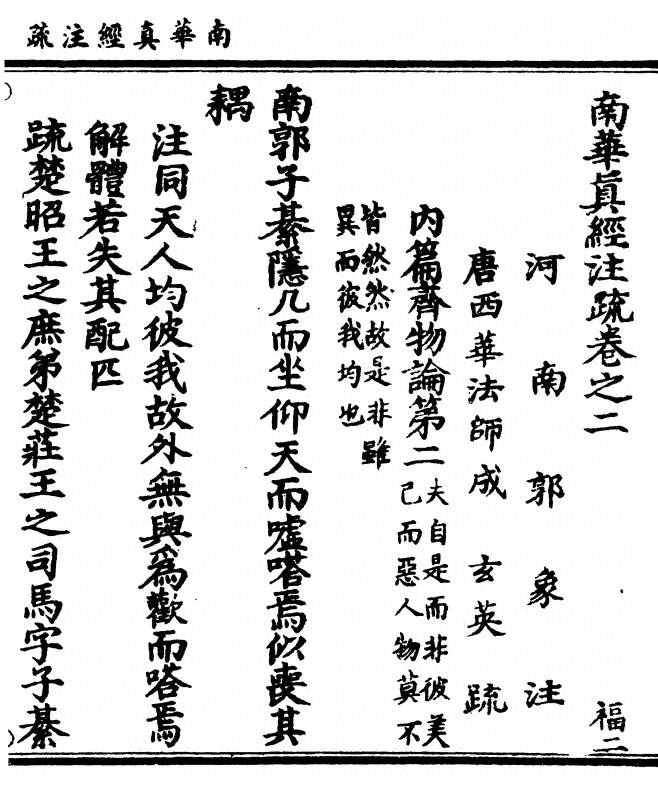 南華真經注疏
南華眞經注疏卷之二
福二
河南郭象注
唐西華法師成玄英疏
內篇齊物論第二
夫自是而非彼美
己而惡人物莫不
皆然然故是非雖
異而彼我均也
南郭子綦隱几而坐仰天而噓嗒焉似喪其
耦
注同天人均彼我故外無與為歡而嗒焉
解體若失其配匹
疏楚昭王之庶弟楚莊王之司馬字子綦